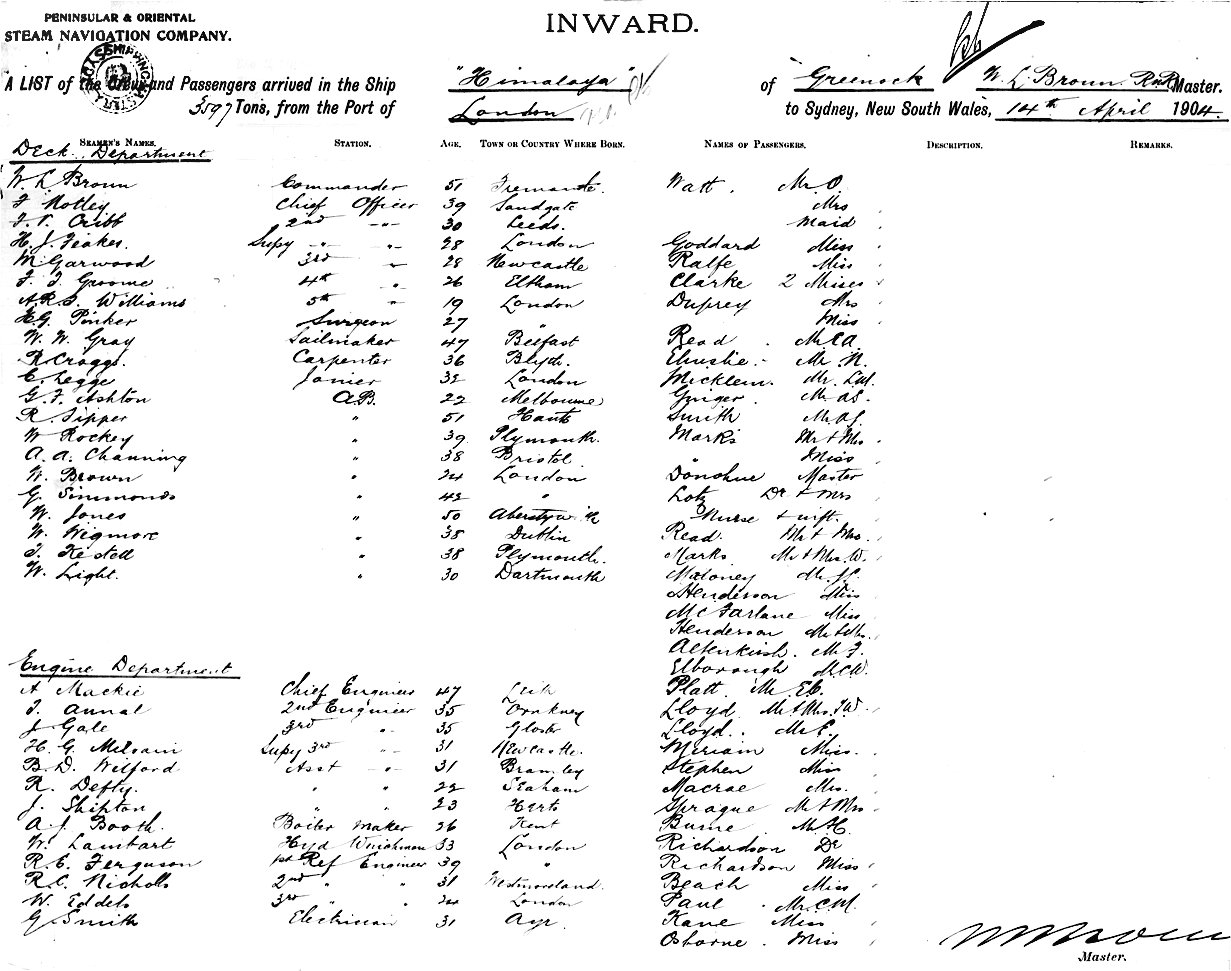 PENINSULAR & ORIENTAL
STEAM NAVIGATION COMPANY.
INWARD.
A LIST of the Crew and Passengers arrived in the Ship "Himalaya" of Greenock W. L. Broun RNR Master.
3597 Tons, from the Port of London to Sydney, New South Wales, 14th April 1904.
SEAMEN'S NAMES. STATION. AGE. TOWN OR COUNTRY WHERE BORN. NAMES OF PASSENGERS. DESCRIPTION. REMARKS.
Deck Department
W. L. Broun Commander 51 Fremantle. Watt. Mr O.
F Notley Chief Officer 39 Sandgate Mrs
F. T. Cribb 2nd -"- 30 Leeds. Maid
H. J. Feakes. Supy -"- -"- 28 London Goddard Miss
W Garwood 3rd " 28 Newcastle Ralfe Miss
F. J. Groome 4th " 26 Eltham Clarke 2 Misses
A.R.S. Williams 5th " 19 London Duprey Mrs
H.G. Pinker Surgeon 27 " Miss
W. W. Gray Sailmaker 47 Belfast Read Mr C A
R. Craggs. Carpenter 36 Blyth. Elmslie. Mr N.
C. Legge Joiner 32 London Micklem. Mr
G. F. Ashton A.B. 22 Melbourne Ginger. Mr
R. Tipper " 51 Hants Smith Mr
W Rockey " 39 Plymouth. Marks Mr & Mrs
A. A. Channing " 38 Bristol " Miss
W. Brown " 24 London Donohue Master
G. Simmonds " 42 " Lotz Dr & Mrs
W. Jones " 50 Aberystwith Nurse & inft.
W. Wigmore " 38 Dublin Read Mr & Mrs.
J. Kestell " 38 Plymouth. Marks Mr & Mrs. W.
W. Light. " 30 Dartmouth Maloney Mr
Henderson Miss
McFarlane Miss
Henderson Mr & Mrs.
Altenkirch. Mr F.
Engine Department
Elborough Mr C.W.
A Mackie Chief Engineer 47 Leith Platt. Mr
J. Annal 2nd Engineer 35 Orkney Lloyd Mr & Mrs. J.W.
J. Gale 3rd " 35 Gloster Lloyd. Mr E.
H. G. Supy 3rd " 31 Newcastle. Miriam Miss.
B. D. Welford Asst -"- 31 Bramley Stephen Miss
R. Defty. " " 22 Seaham Macrae Mrs.
J. Shipton " " 23 Herts Sprague Mr & Mrs
A. J. Booth. Boiler Maker 26 Kent Burne Mr H.
W. Lambart Hyd Winchman 33 London Richardson Dr
R. E. Ferguson 1st Ref Engineer 39 " Richardson Miss
R. C. Nicholls 2nd " " 31 Westmoreland. Beach Miss
W. Eddels 3rd " " 24 London Paul Mr C.M.
G. Smith Electrician 31 Ayr. Kane Miss
Osborne. Miss
Master.